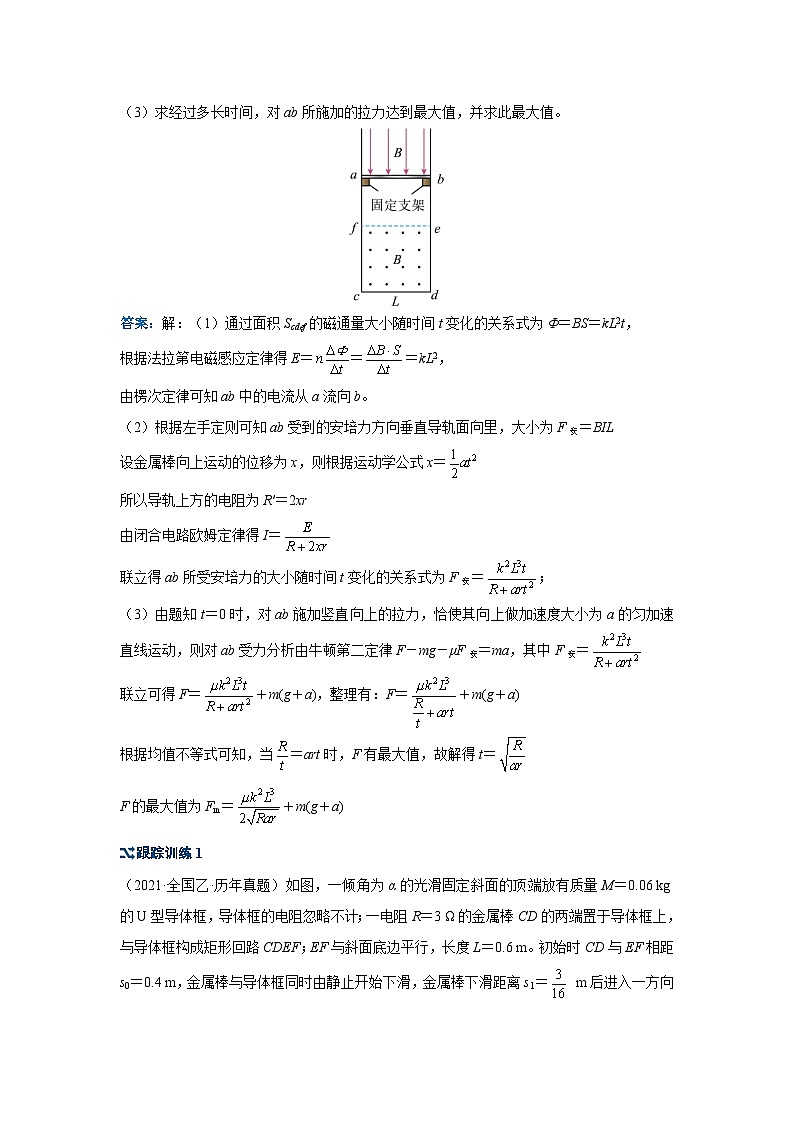 （3）求经过多长时间，对 ab 所施加的拉力达到最大值，并求此最大值。
B
a
b
固定支架
f
e
B
c
L
d
答案：解：（1）通过面积 Scdef 的磁通量大小随时间 t 变化的关系式为 Φ＝BS＝kL²t，
根据法拉第电磁感应定律得 E＝nΔΦ/Δt＝ΔB·S/Δt＝kL²，
由楞次定律可知 ab 中的电流从 a 流向 b。
（2）根据左手定则可知 ab 受到的安培力方向垂直导轨面向里，大小为 F 安＝BIL
设金属棒向上运动的位移为 x，则根据运动学公式 x＝1/2at²
所以导轨上方的电阻为 R′＝2xr
由闭合电路欧姆定律得 I＝E/(R＋2xr)
联立得 ab 所受安培力的大小随时间 t 变化的关系式为 F 安＝k²L³t/(R＋art²)；
（3）由题知 t＝0 时，对 ab 施加竖直向上的拉力，恰使其向上做加速度大小为 a 的匀加速
直线运动，则对 ab 受力分析由牛顿第二定律 F－mg－μF 安＝ma，其中 F 安＝k²L³t/(R＋art²)
联立可得 F＝μk²L³t/(R＋art²)＋m(g＋a)，整理有：F＝μk²L³/(R/t＋art)＋m(g＋a)
根据均值不等式可知，当R/t＝art 时，F 有最大值，故解得 t＝√(R/ar)
F 的最大值为 Fm＝μk²L³/(2√Rar)＋m(g＋a)
跟踪训练 1
（2021·全国乙·历年真题）如图，一倾角为 α 的光滑固定斜面的顶端放有质量 M＝0.06 kg
的 U 型导体框，导体框的电阻忽略不计；一电阻 R＝3 Ω 的金属棒 CD 的两端置于导体框上，
与导体框构成矩形回路 CDEF；EF 与斜面底边平行，长度 L＝0.6 m。初始时 CD 与 EF 相距
s0＝0.4 m，金属棒与导体框同时由静止开始下滑，金属棒下滑距离 s1＝3/16 m 后进入一方向